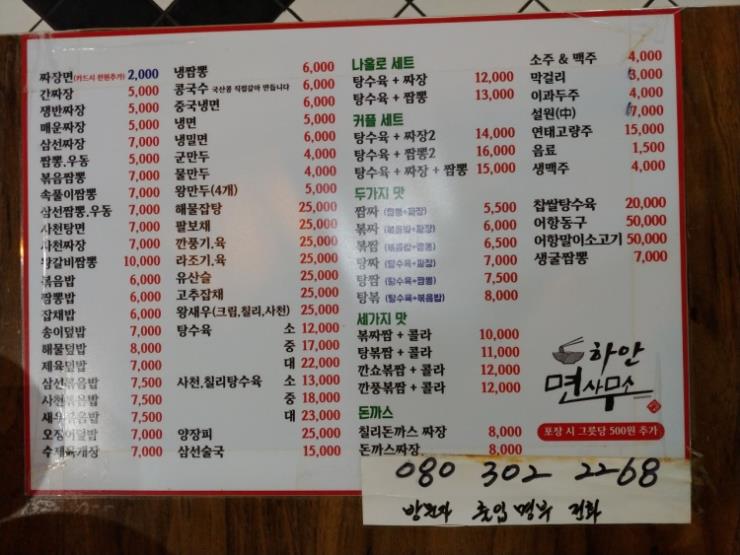 짜장면(카드시 천원추가) 2,000
간짜장 5,000
쟁반짜장 5,000
매운짜장 5,000
삼선짜장 7,000
짬뽕,우동 5,000
볶음짬뽕 7,000
속풀이짬뽕 7,000
삼선짬뽕,우동 7,000
사천탕면 7,000
사천짜장 7,000
왕갈비짬뽕 10,000
볶음밥 6,000
짬뽕밥 6,000
잡채밥 6,000
송이덮밥 7,000
해물덮밥 8,000
제육덮밥 7,000
삼선볶음밥 7,500
사천볶음밥 7,500
새우볶음밥 7,500
오징어덮밥 7,000
수제육개장 7,000
냉짬뽕 6,000
콩국수 국산콩 직접갈아 만듭니다 6,000
중국냉면 6,000
냉면 5,000
냉밀면 6,000
군만두 4,000
물만두 4,000
왕만두(4개) 5,000
해물잡탕 25,000
팔보채 25,000
깐풍기,육 25,000
라조기,육 25,000
유산슬 25,000
고추잡채 25,000
왕새우(크림,칠리,사천) 25,000
탕수육 소 12,000
중 17,000
대 22,000
사천,칠리탕수육 소 13,000
중 18,000
대 23,000
양장피 25,000
삼선술국 15,000
나홀로 세트
탕수육 + 짜장 12,000
탕수육 + 짬뽕 13,000
커플 세트
탕수육 + 짜장2 14,000
탕수육 + 짬뽕2 16,000
탕수육 + 짜장 + 짬뽕 15,000
두가지 맛
짬짜 (짬뽕+짜장) 5,500
볶짜 (볶음밥+짜장) 6,000
볶짬 (볶음밥+짬뽕) 6,500
탕짜 (탕수육+짜장) 7,000
탕짬 (탕수육+짬뽕) 7,500
탕볶 (탕수육+볶음밥) 8,000
세가지 맛
볶짜짬 + 콜라 10,000
탕볶짬 + 콜라 11,000
깐쇼볶짬 + 콜라 12,000
깐풍볶짬 + 콜라 12,000
돈까스
칠리돈까스 짜장 8,000
돈까스짜장 8,000
소주 & 맥주 4,000
막걸리 3,000
이과두주 4,000
설원(中) 7,000
연태고량주 15,000
음료 1,500
생맥주 4,000
찹쌀탕수육 20,000
어항동구 50,000
어항말이소고기 50,000
생굴짬뽕 7,000
하안
면사무소
포장 시 그릇당 500원 추가
080 302 2268
방문자 출입 명부 전화